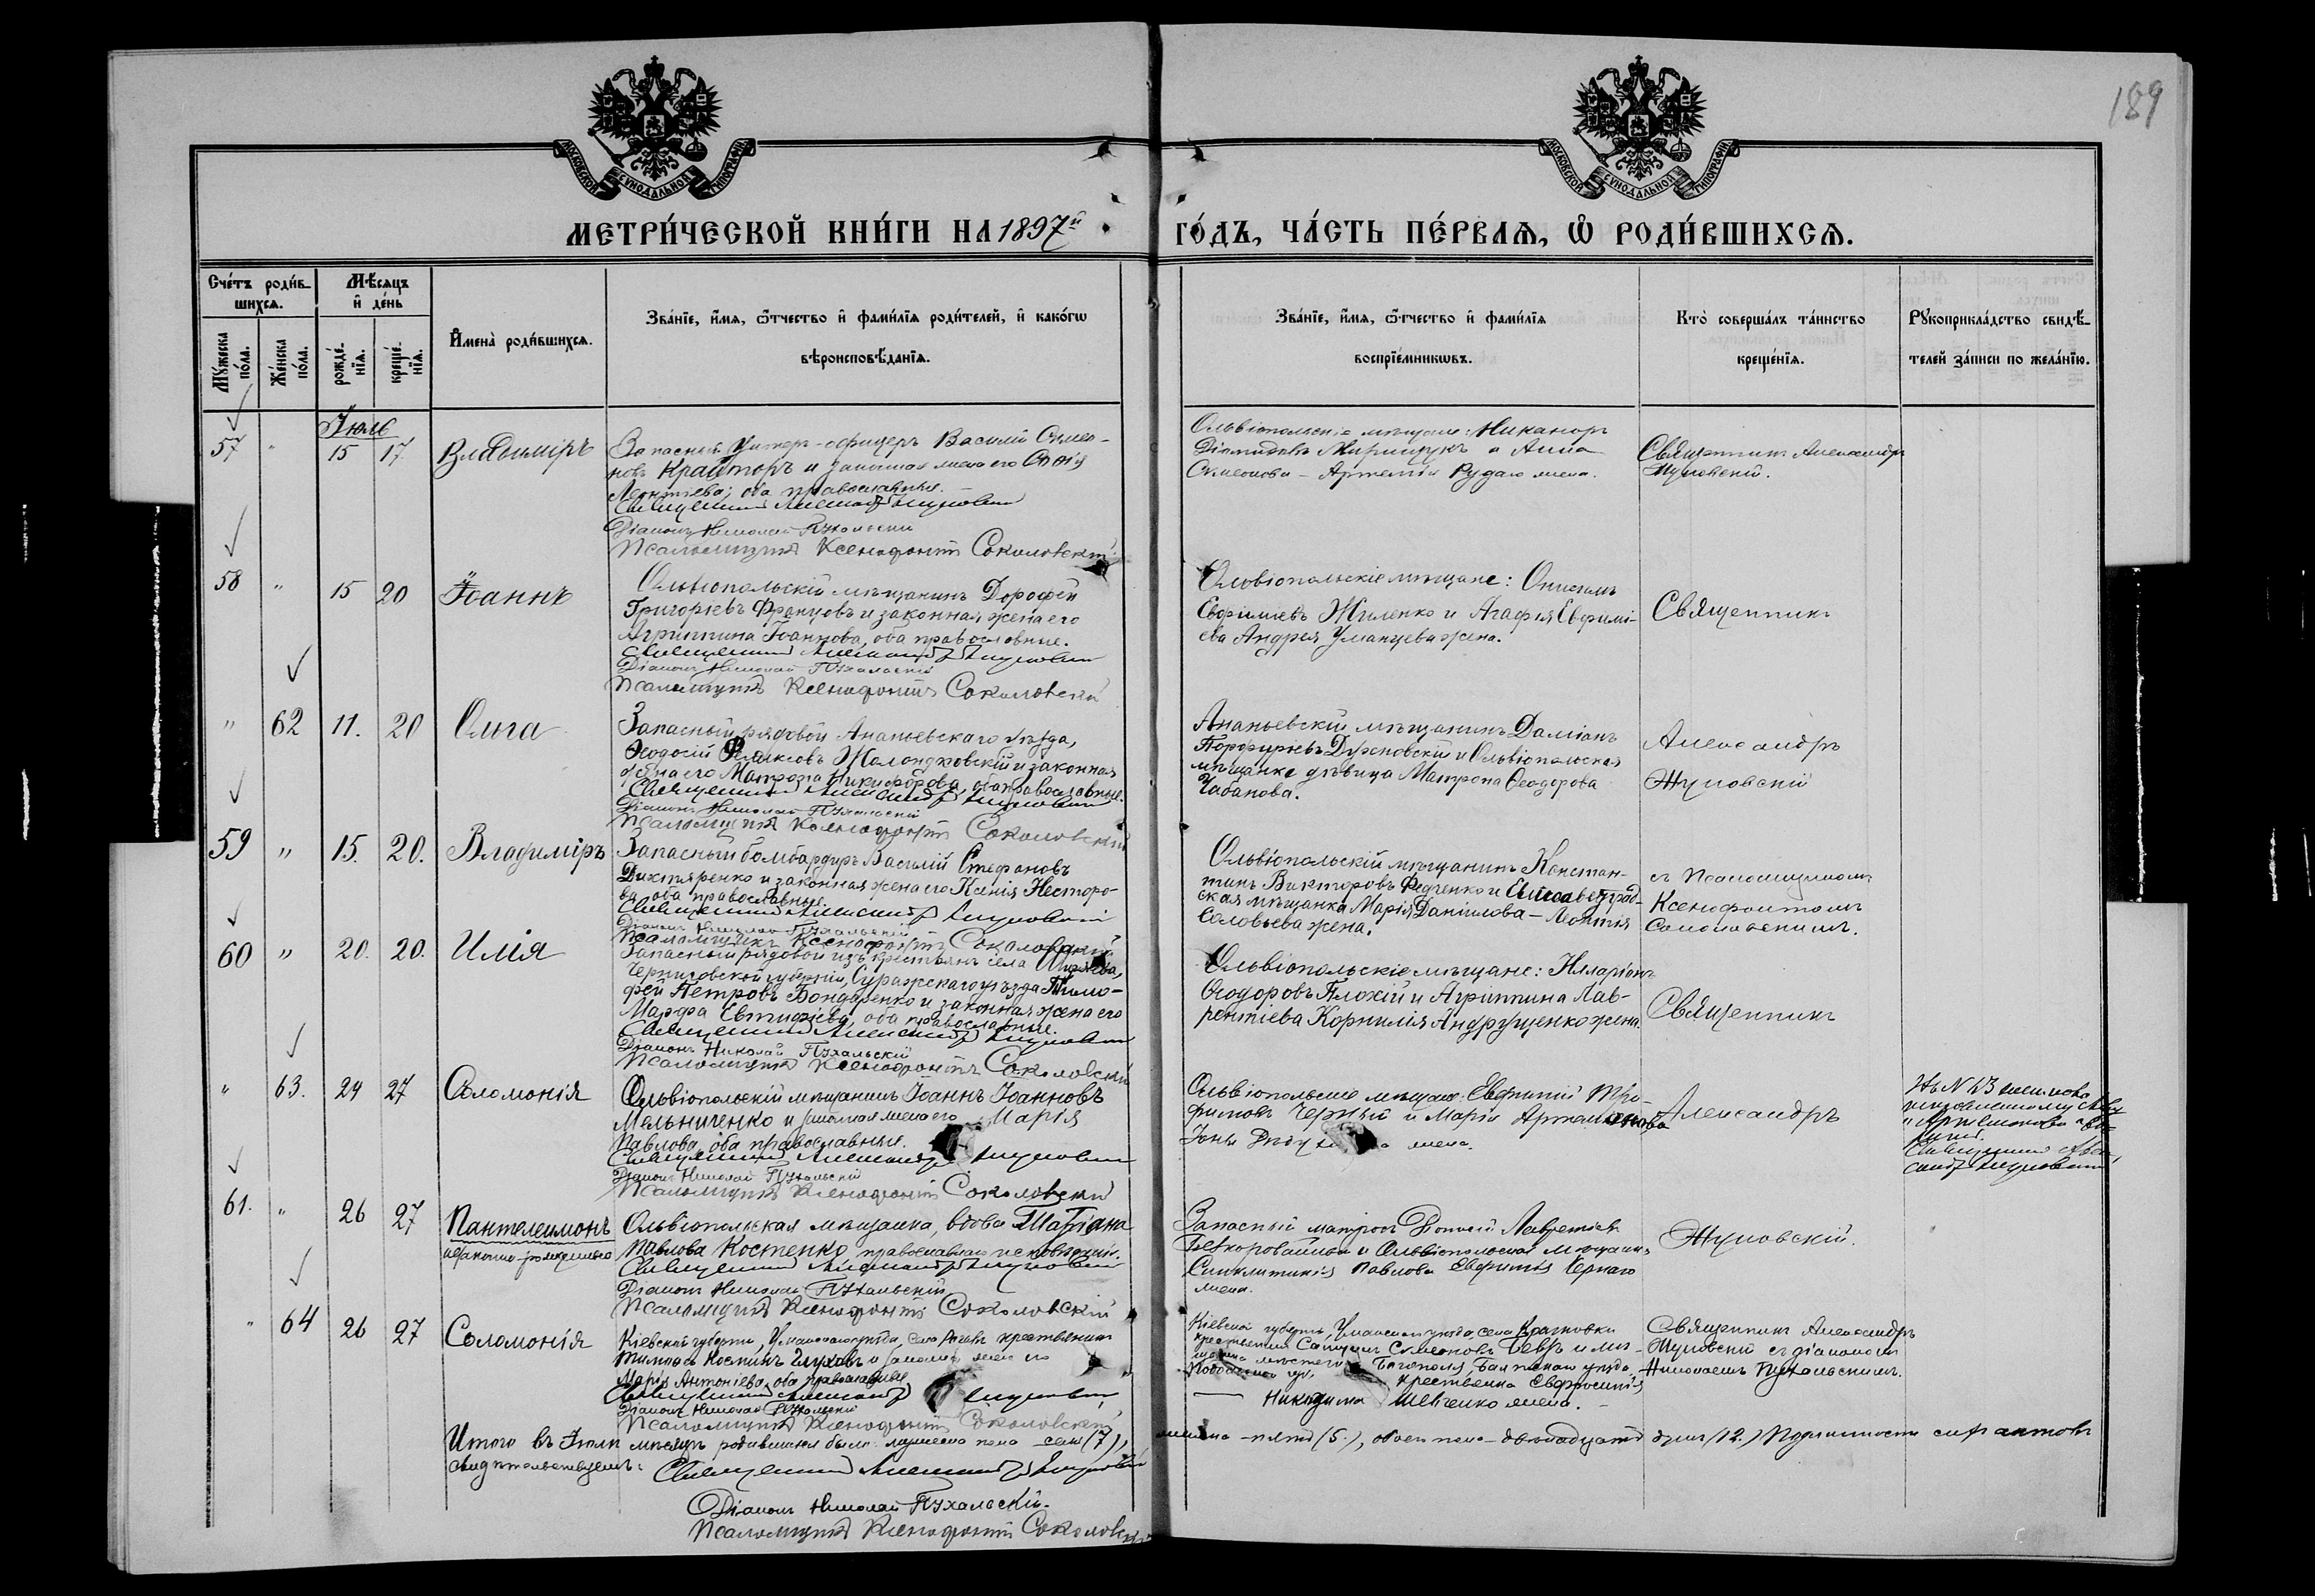 189
МОСКОВСКОЙ СѴНОДАЛЬНОЙ ТИПОГРАФІИ
МОСКОВСКОЙ СѴНОДАЛЬНОЙ ТИПОГРАФІИ
МЕТРИ́ЧЕСКОЙ КНИ́ГИ НА 1897й ГО́ДЪ, ЧА́СТЬ ПЕ́РВАѦ, Ѡ҆ РОДИ́ВШИХСѦ.
Сче́тъ роди́в-
шихсѧ.
Мѣ́сѧцъ
и҆ де́нь
Мꙋ́жеска
по́ла.
Же́нска
по́ла.
рожде́-
нїѧ.
креще́-
нїѧ.
И҆мена̀ роди́вшихсѧ.
Зва́нїе, и҆́мѧ, ѻ҆́тчество и҆ фами́лїѧ роди́телей, и҆ како́гѡ
вѣроисповѣ́данїѧ.
Зва́нїе, и҆́мѧ, ѻ҆́тчество и҆ фами́лїѧ
воспрїе́мникѡвъ.
Кто̀ соверша́лъ та́инство
креще́нїѧ.
Рꙋкоприкла́дство свидѣ́-
телей за́писи по жела́нїю.
Іюль
57 " 15 17 Владиміръ
Запасный Унтеръ-офицеръ Василій Симео-
новъ и законная жена его
Леонтіева, оба православные.
Священникъ Александръ Жуповскій
Діаконъ Николай Пухальскій
Псаломщикъ Ксенофонтъ Соколовскій
Ольвіопольскіе мѣщане: Никаноръ
и Анна
Симеонова - Артемія Рудаго жена.
Священникъ Александръ
Жуповскій.
58 " 15 20 Іоаннъ
Ольвіопольскій мѣщанинъ Дорофей
Григоріевъ Францовъ и законная жена его
Агриппина Іоаннова, оба православные.
Священникъ Александръ Жуповскій
Діаконъ Николай Пухальскій
Псаломщикъ Ксенофонтъ Соколовскій
Ольвіопольскіе мѣщане: Онисимъ
Евфиміевъ Жиленко и Агафія Евфимі-
ева Андрея Уманцева жена.
Священникъ
" 62 11. 20 Ольга
Запасный рядовой Ананьевскаго уѣзда,
Ѳеодосій Феликсовъ и законная
жена его Матрона Никифорова, оба православные.
Священникъ Александръ Жуповскій
Діаконъ Николай Пухальскій
Псаломщикъ Ксенофонтъ Соколовскій
Ананьевскій мѣщанинъ Даміанъ
Порфиріевъ и Ольвіопольская
мѣщанка дѣвица Матрона Ѳеодорова
Чабанова.
Александръ
Жуповскій
59 " 15. 20. Владиміръ
Запасный бомбардиръ Василій Стефановъ
Дихтяренко и законная жена его Ксенія Несторо-
ва, оба православные.
Священникъ Александръ Жуповскій
Діаконъ Николай Пухальскій
Псаломщикъ Ксенофонтъ Соколовскій
Ольвіопольскій мѣщанинъ Констан-
тинъ Викторовъ Федченко и Елисаветград-
ская мѣщанка Марія Даніилова - Леонтія
Соловьева жена.
съ Псаломщикомъ
Ксенофонтомъ
Соколовскимъ.
60 " 20. 20. Илія
Запасный рядовой изъ крестьянъ села
Черниговской губерніи, Суражскаго уѣзда Тимо-
фей Петровъ Бондаренко и законная жена его
Марфа Евтихіева, оба православные.
Священникъ Александръ Жуповскій
Діаконъ Николай Пухальскій
Псаломщикъ Ксенофонтъ Соколовскій
Ольвіопольскіе мѣщане: Иларіонъ
Ѳеодоровъ Плохій и Агриппина Лав-
рентіева Корнилія Андрущенко жена.
Священникъ
" 63. 24 27 Соломонія
Ольвіопольскій мѣщанинъ Іоаннъ Іоанновъ
Мельниченко и законная жена его Марія
Павлова, оба православные.
Священникъ Александръ Жуповскій
Діаконъ Николай Пухальскій
Псаломщикъ Ксенофонтъ Соколовскій
Ольвіопольскіе мѣщане: Евфимій Тро-
фимовъ Черный и Марія Артемонова
Іоны жена.
Александръ
Въ № 63
Священникъ Алек-
сандръ Жуповскій
61. " 26 27 Пантелеимонъ
незаконно-рожденный
Ольвіопольская мѣщанка, вдова Татіана
Павлова Костенко, православнаго исповѣданія.
Священникъ Александръ Жуповскій
Діаконъ Николай Пухальскій
Псаломщикъ Ксенофонтъ Соколовскій
Запасный матросъ
и Ольвіопольская мѣщанка
Синклитикія Павлова Евфимія Чернаго
жена.
Жуповскій.
" 64 26 27 Соломонія
Кіевской губерніи, Уманскаго уѣзда, села крестьянинъ
и законная жена его
Марія Антоніева, оба православные
Священникъ Александръ Жуповскій
Діаконъ Николай Пухальскій
Псаломщикъ Ксенофонтъ Соколовскій
Кіевской губерніи, Уманскаго уѣзда, села
крестьянинъ Симеоновъ
мѣстечка Богополя, Балтскаго уѣзда,
Подольской губ. крестьянка Евфросинія
Никодима Шевченко жена.
Священникъ Александръ
Жуповскій съ діакономъ
Николаемъ Пухальскимъ.
Итого въ Іюлѣ мѣсяцѣ родившихся было: мужеска пола - семь (7), женска - пять (5), обоего пола - двѣнадцать душъ (12.) Подлинность сихъ актовъ
свидѣтельствуемъ: Священникъ Александръ Жуповскій
Діаконъ Николай Пухальскій.
Псаломщикъ Ксенофонтъ Соколовскій